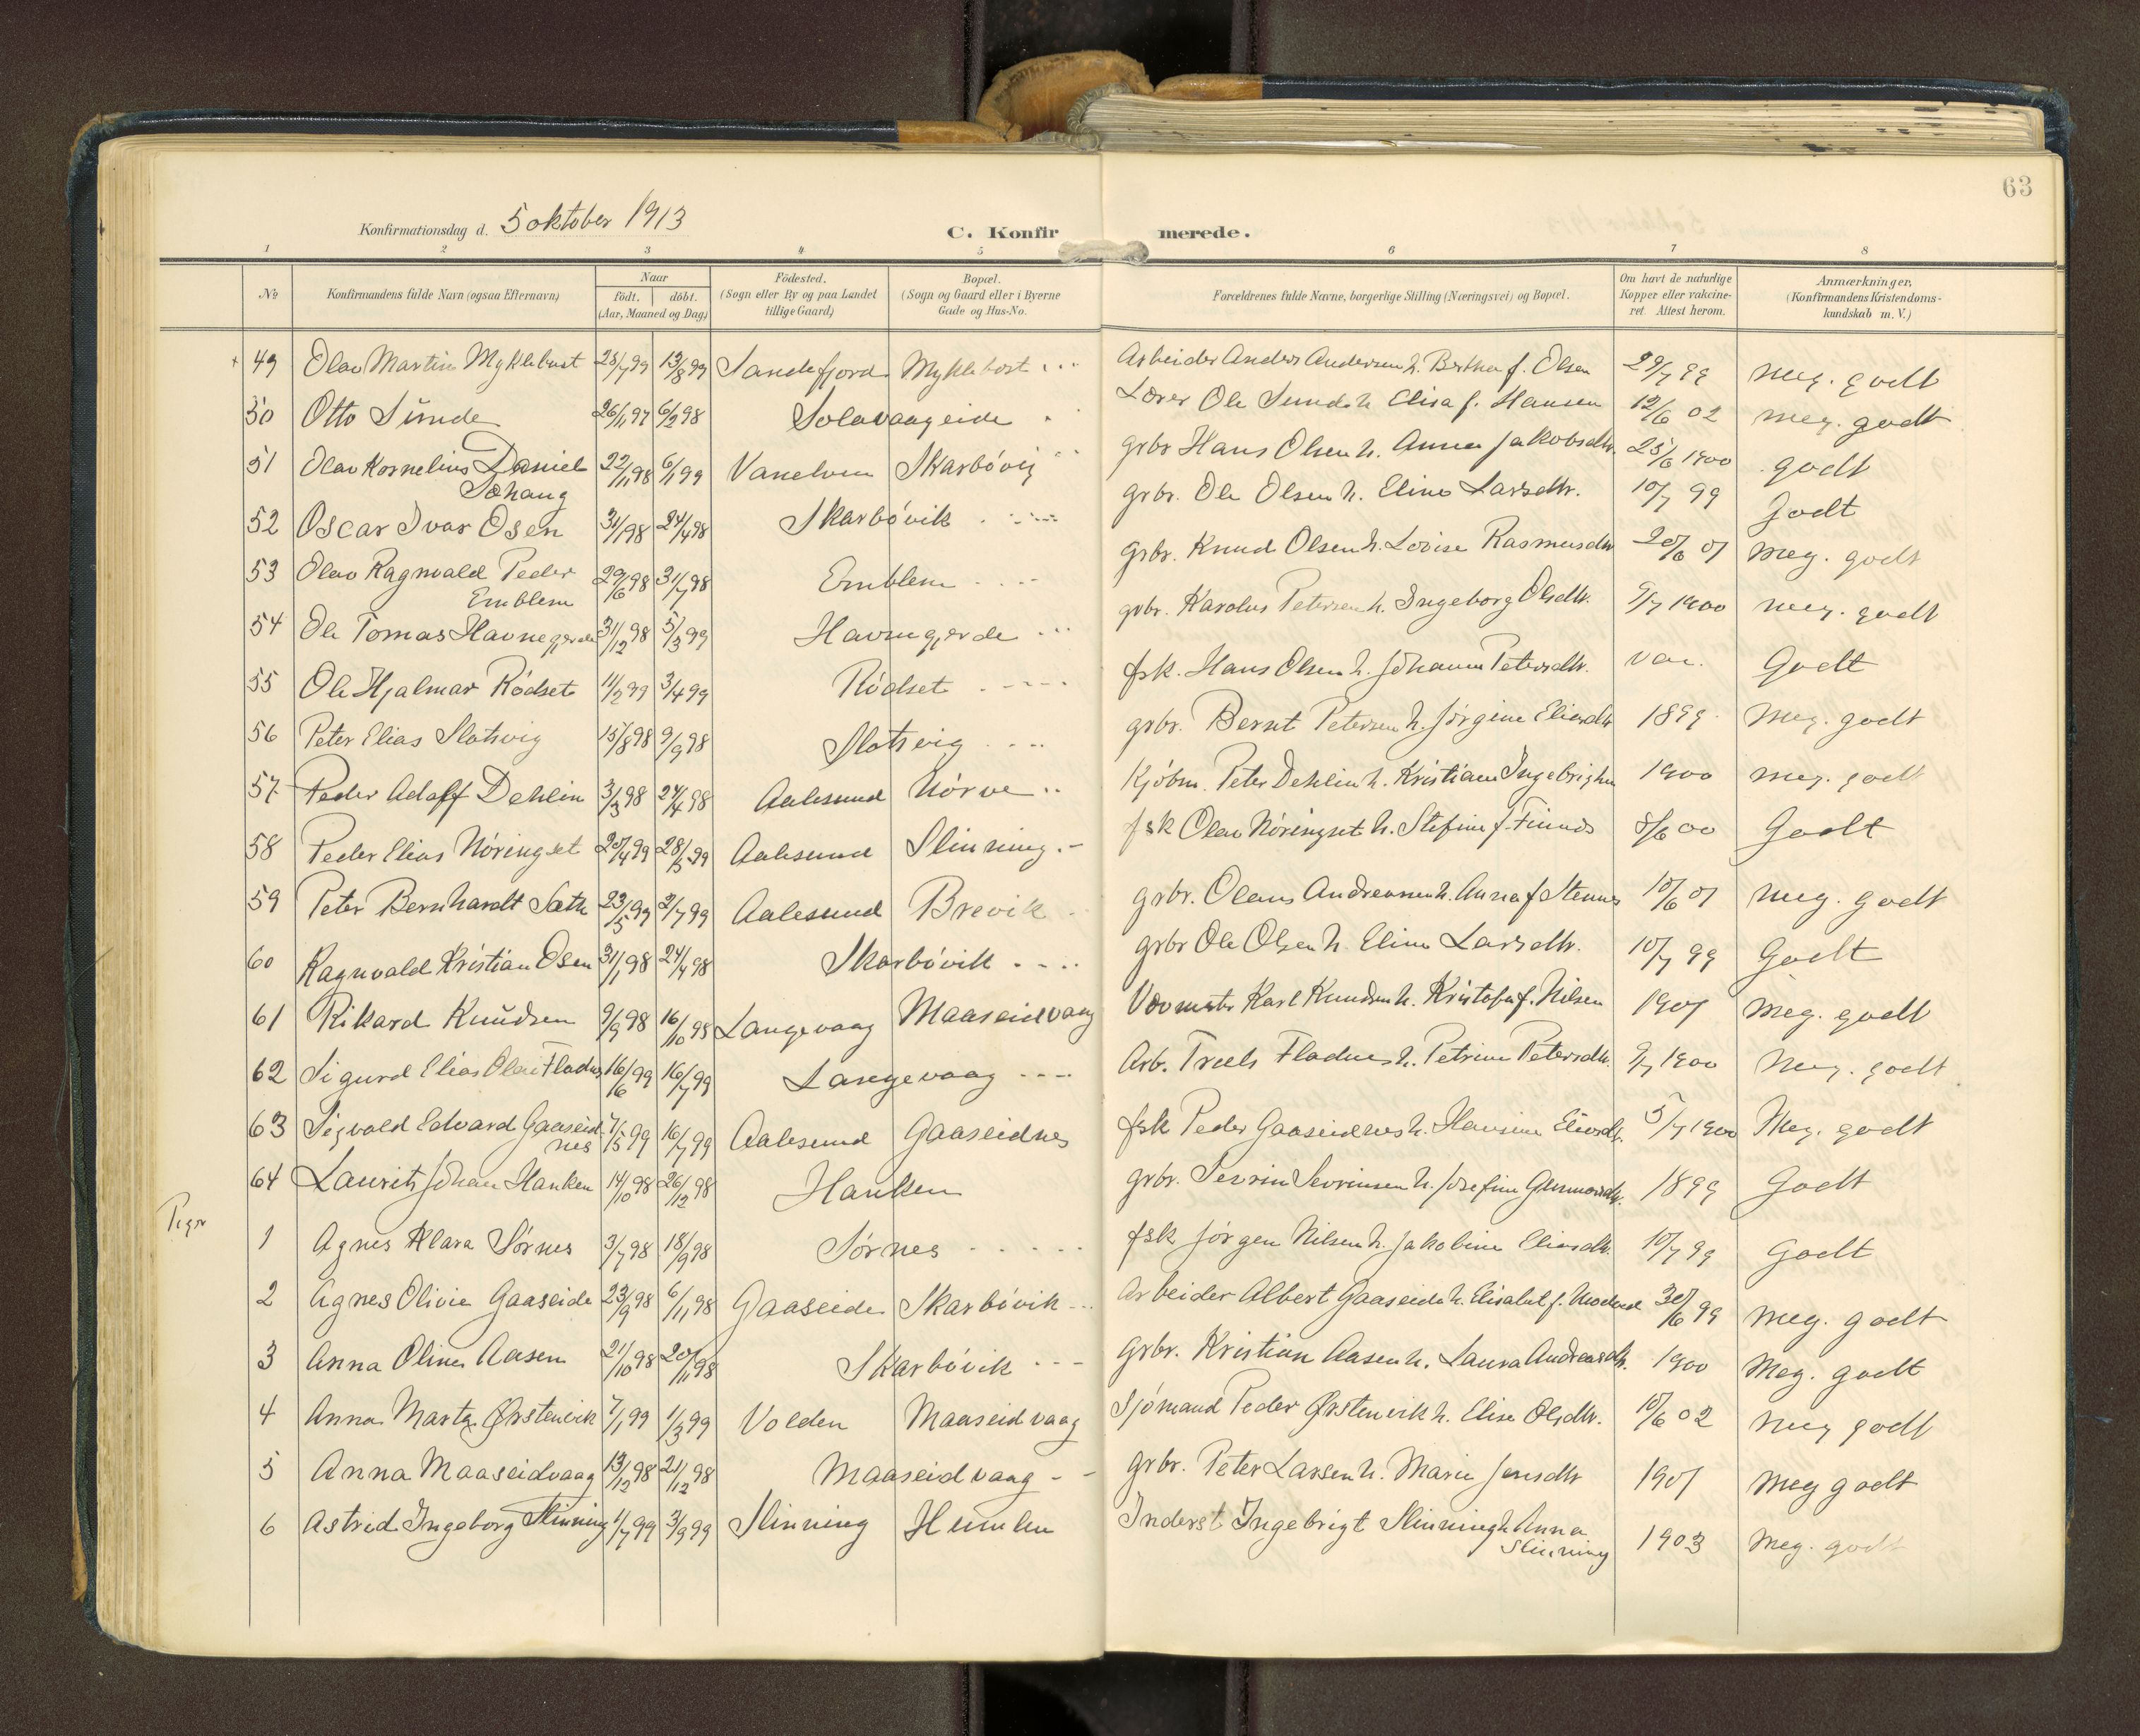 63
Konfirmationsdag d. 5 oktober 1913
C. Konfirmerede.
1 2 3 4 5 6 7 8
No Konfirmandens fulde Navn (ogsaa Efternavn) Naar født. døbt. (Aar, Maaned og Dag) Födested. (Sogn eller By og paa Landet tillige Gaard) Bopæl. (Sogn og Gaard eller i Byerne Gade og Hus-No. Forældrenes fulde Navne, borgerlige Stilling (Næringsvei) og Bopæl. Om havt de naturlige Kopper eller vakcineret. Attest herom. Anmærkninger, (Konfirmandens Kristendomskundskab m. V.)
+ 49 Olav Martin Myklebust 25/7 99 13/8 99 Sandefjord Myklebost Arbeider Anders Andersen h. Bertha f. Olsen 29/7 99 meg. godt
50 Otto Sunde 26/11 97 6/2 98 Solavaageide Lærer Ole Sunde h. Elisa f. Hansen 12/6 02 meg. godt
51 Olav Kornelius Daniel Sæhaug 22/11 98 6/1 99 Vanelven Skarbövig grbr Hans Olsen h. Anna Jakobsdtr. 25/6 1900 godt
52 Oscar Ivar Osen 31/1 98 24/4 98 Skarbövik grbr. Ole Olsen h. Eline Larsdtr. 10/7 99 Godt
53 Olav Ragnvald Peder Emblem 29/6 98 31/7 98 Emblem grbr. Knud Olsen h. Lovise Rasmusdtr 20/6 01 meg. godt
54 Ole Tomas Havnegjerde 31/12 98 5/3 99 Havnegjerde grbr. Karolus Petersen h. Ingeborg Olsdtr. 9/7 1900 meg. godt
55 Ole Hjalmar Rödset 11/2 99 3/4 99 Rödset fsk. Hans Olsen h. Johanne Petersdtr. vac. Godt
56 Peter Elias Slotsvig 15/8 98 9/9 98 Slotsvig grbr. Bernt Petersen h. Jörgine Eliasdtr 1899 Meg. godt
57 Peder Adolf Dehlin 3/3 98 24/4 98 Aalesund Nörve Kjöbm. Peter Dehlin h. Kristiane Ingebrigtsen 1900 meg. godt
58 Peder Elias Nöringset 20/4 99 28/5 99 Aalesund Slinning fsk Olav Nöringset h. Stefine f. 8/6 00 Godt
59 Peter Bernhardt Sæth 23/5 99 2/7 99 Aalesund Brevik grbr. Olaus Andreassen h. Anna f Stennes 10/6 01 meg. godt
60 Ragnvald Kristian Osen 31/1 98 24/4 98 Skarbövik grbr Ole Olsen h. Eline Larsdtr. 10/7 99 Godt
61 Rikard Knudsen 9/9 98 16/10 98 Langevaag Maaseidvaag Karl Knudsen h. f. Nilsen 1901 Meg. godt
62 Sigurd Elias Olai Fladnes 16/6 99 16/7 99 Langevaag Arb. Truls Fladnes h. Petrine Petersdtr. 9/7 1900 Meg. godt
63 Sigvald Edvard Gaaseidnes 7/5 99 16/7 99 Aalesund Gaaseidnes fsk Peder Gaaseidnes h. Hansine Eliasdtr. 5/7 1900 Meg. godt
64 Laurits Johan Hanken 14/10 98 26/12 98 Hanken grbr. Sevrin Sevrinsen h. Josefine 1899 Godt
Piger
1 Agnes Klara Sörnes 3/7 98 18/9 98 Sörnes fsk Jörgen Nilsen h. Jakobine Eliasdtr. 10/7 99 Godt
2 Agnes Olivie Gaaseide 23/9 98 6/11 98 Gaaseide Skarbövik Arbeider Albert Gaaseide h. Elisabet f. 30/6 99 Meg. godt
3 Anna Oline Aasen 21/10 98 20/11 98 Skarbövik Grbr. Kristian Aasen h. Laura Andreasdtr. 1900 Meg. godt
4 Anna Marta Ørstenvik 7/1 99 1/3 99 Volden Maaseidvaag Sjömand Peder Ørstenvik h. Elise Olsdtr. 10/6 02 meg godt
5 Anna Maaseidvaag 13/12 98 21/12 98 Maaseidvaag grbr. Peter Larsen h. Marie Jensdtr 1901 Meg godt
6 Astrid Ingeborg Slinning 1/7 99 3/9 99 Slinning Humlen Inderst Ingebrigt Slinning h Anna Slinning 1903 Meg. godt